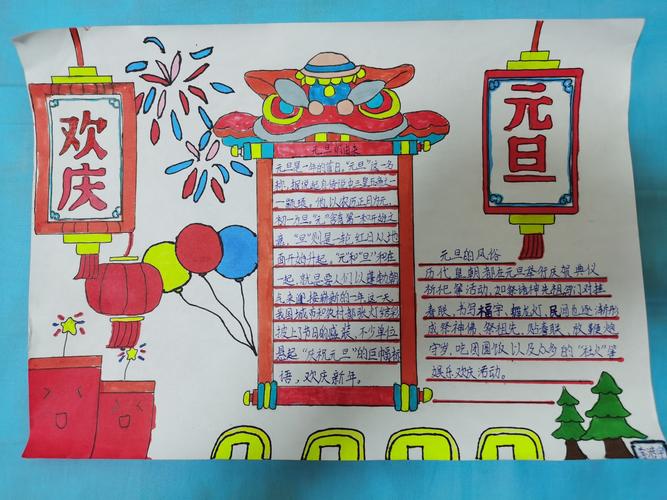 欢庆
元旦
元旦的由来
元旦是一年的首日,"元旦"这一名
称,据说起自传说中三皇五帝之一
颛顼,他以农历正月为元,
初一为旦,"元"含有第一和开始之
意,"旦"则是一轮红日从地
面开始升起,"元"和"旦"和在
一起,就是要人们以蓬勃朝
气来迎接崭新的一年这一天
我国城市和农村都张灯结彩
披上节日的盛装,不少单位
悬起"庆祝元旦"的巨幅标
语,欢庆新年。
元旦的风俗
历代皇朝都在元旦举行庆贺典仪
祈祀等活动,如祭诸神先祖,写门对挂
春联,书写福字、舞龙灯,民间也逐渐形
成祭神佛、祭祖先、贴春联、放鞭炮
守岁、吃团圆饭以及众多的"社火"等
娱乐欢庆活动。